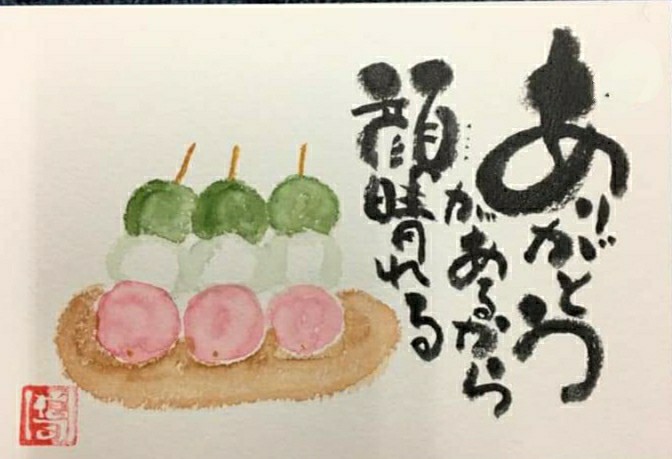 ありがとう
…があるから
顔晴れる